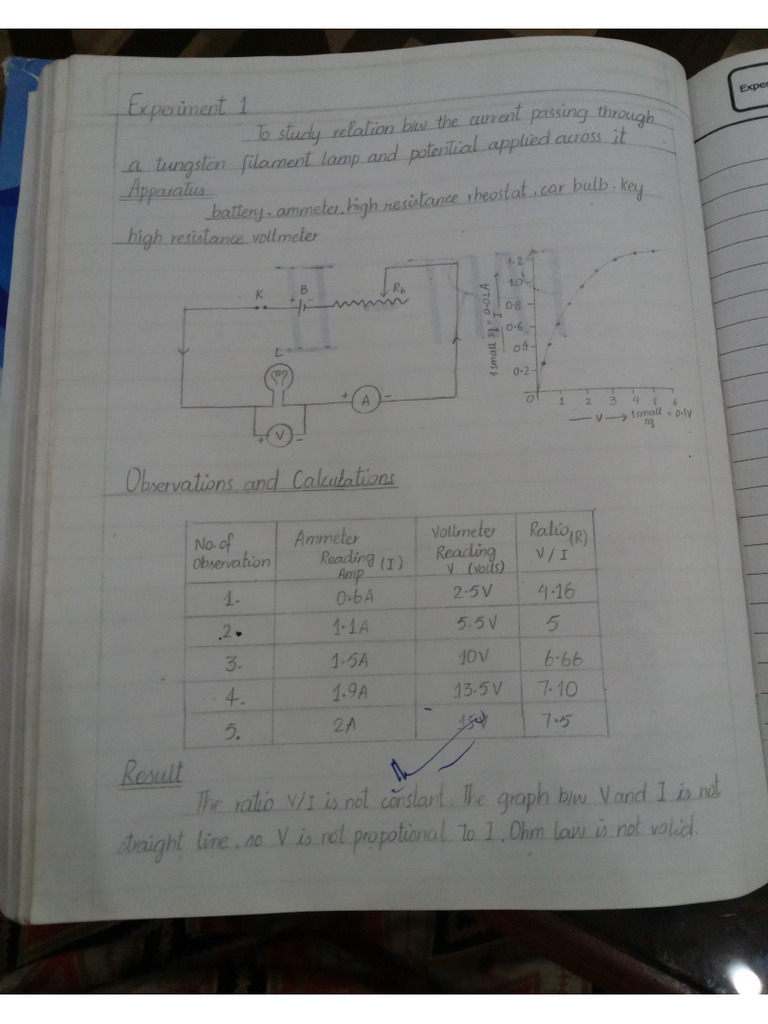 Experiment 1
To study relation b/w the current passing through
a tungsten filament lamp and potential applied across it
Apparatus
battery, ammeter, high resistance rheostat, car bulb, key
high resistance vollmeter
K
B
+ -
Rh
L
+ A -
+ V -
1 small sq = 0.02A
I
1.2
1.0
0.8
0.6
0.4
0.2
0 1 2 3 4 5 6
V → 1 small sq = 0.1V
Observations and Calculations
No. of Observation | Ammeter Reading (I) Amp | Vollmeter Reading V (volts) | Ratio (R) V/I
1. 0.6A 2.5V 4.16
2. 1.1A 5.5V 5
3. 1.5A 10V 6.66
4. 1.9A 13.5V 7.10
5. 2A 15V 7.5
Result
The ratio V/I is not constant. The graph b/w V and I is not
straight line, so V is not propotional to I. Ohm law is not valid.
Exper